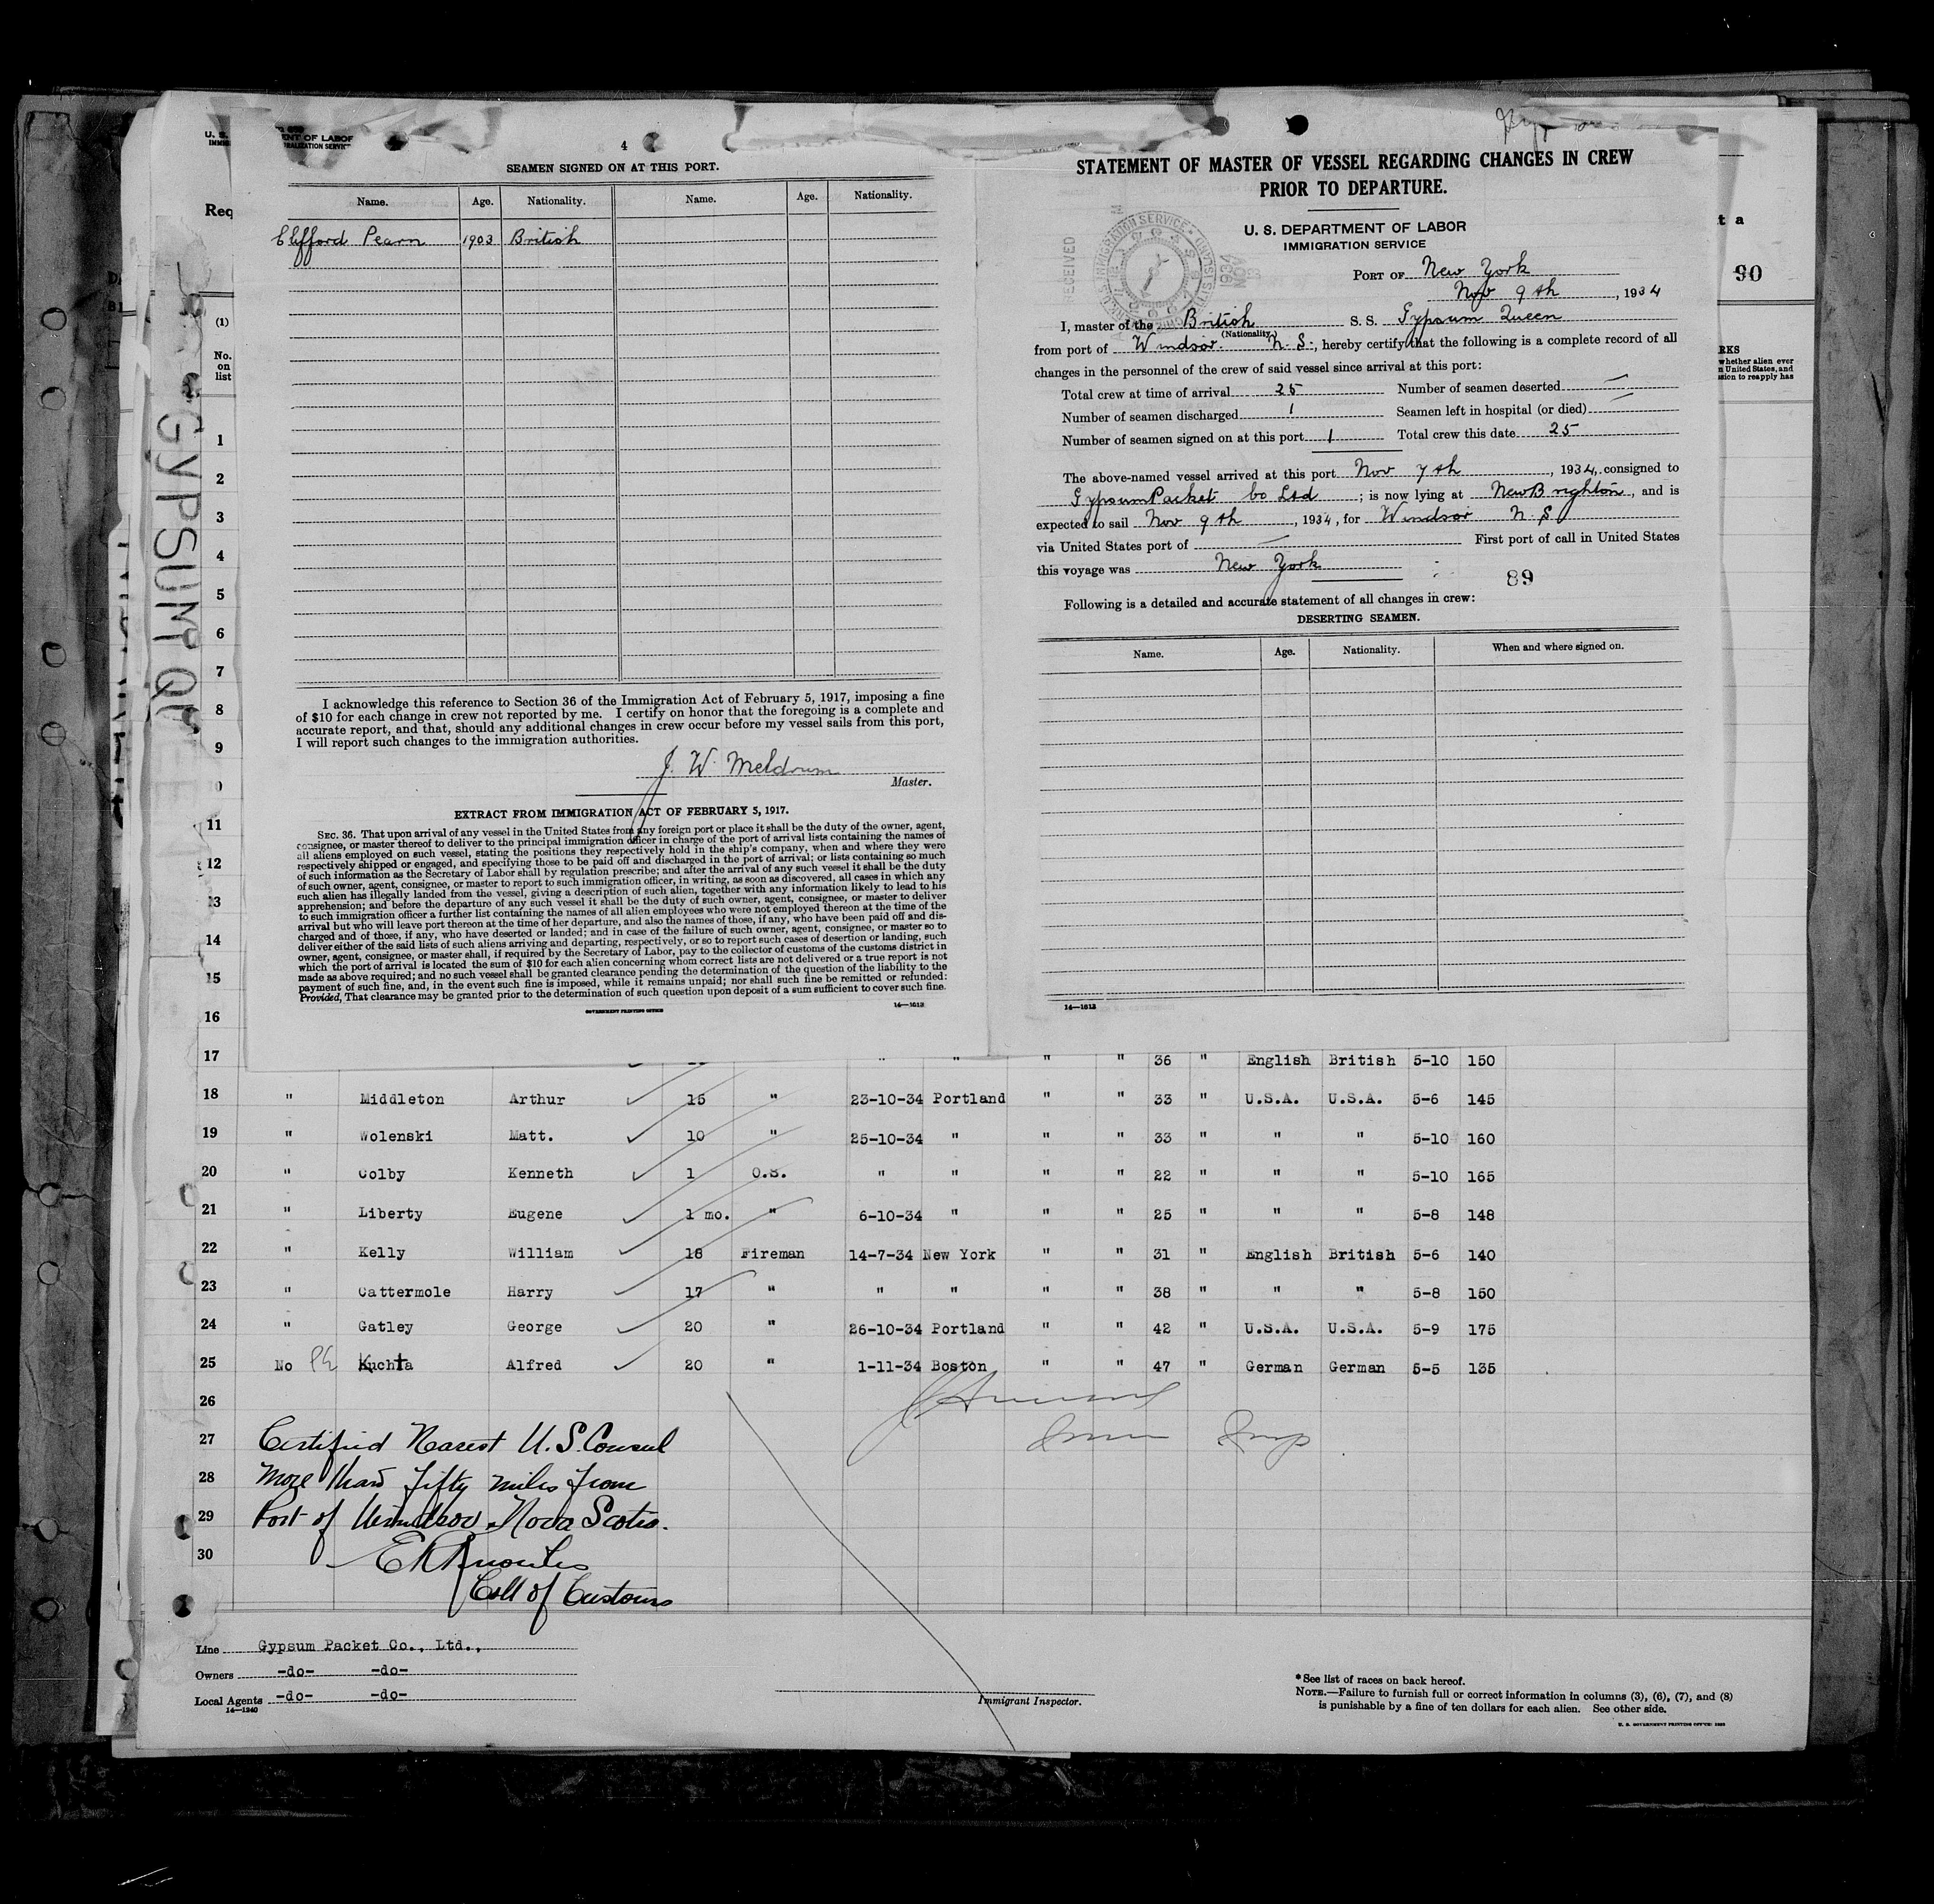 4
SEAMEN SIGNED ON AT THIS PORT.
Name. Age. Nationality. Name. Age. Nationality.
Clifford Pearn 1903 British
I acknowledge this reference to Section 36 of the Immigration Act of February 5, 1917, imposing a fine
of $10 for each change in crew not reported by me. I certify on honor that the foregoing is a complete and
accurate report, and that, should any additional changes in crew occur before my vessel sails from this port,
I will report such changes to the immigration authorities.
J. W. Meldrum
Master.
EXTRACT FROM IMMIGRATION ACT OF FEBRUARY 5, 1917.
SEC. 36. That upon arrival of any vessel in the United States from any foreign port or place it shall be the duty of the owner, agent,
consignee, or master thereof to deliver to the principal immigration officer in charge of the port of arrival lists containing the names of
all aliens employed on such vessel, stating the positions they respectively hold in the ship's company, when and where they were
respectively shipped or engaged, and specifying those to be paid off and discharged in the port of arrival; or lists containing so much
of such information as the Secretary of Labor shall by regulation prescribe; and after the arrival of any such vessel it shall be the duty
of such owner, agent, consignee, or master to report to such immigration officer, in writing, as soon as discovered, all cases in which any
such alien has illegally landed from the vessel, giving a description of such alien, together with any information likely to lead to his
apprehension; and before the departure of any such vessel it shall be the duty of such owner, agent, consignee, or master to deliver
to such immigration officer a further list containing the names of all alien employees who were not employed thereon at the time of the
arrival but who will leave port thereon at the time of her departure, and also the names of those, if any, who have been paid off and dis-
charged and of those, if any, who have deserted or landed; and in case of the failure of such owner, agent, consignee, or master so to
deliver either of the said lists of such aliens arriving and departing, respectively, or so to report such cases of desertion or landing, such
owner, agent, consignee, or master shall, if required by the Secretary of Labor, pay to the collector of customs of the customs district in
which the port of arrival is located the sum of $10 for each alien concerning whom correct lists are not delivered or a true report is not
made as above required; and no such vessel shall be granted clearance pending the determination of the question of the liability to the
payment of such fine, and, in the event such fine is imposed, while it remains unpaid; nor shall such fine be remitted or refunded:
Provided, That clearance may be granted prior to the determination of such question upon deposit of a sum sufficient to cover such fine.
GOVERNMENT PRINTING OFFICE 14—1613
STATEMENT OF MASTER OF VESSEL REGARDING CHANGES IN CREW
PRIOR TO DEPARTURE.
U. S. DEPARTMENT OF LABOR
IMMIGRATION SERVICE
RECEIVED
1934 NOV
PORT OF New York
Nov 9th, 1934
I, master of the British S. S. Gypsum Queen
(Nationality)
from port of Windsor. N. S., hereby certify that the following is a complete record of all
changes in the personnel of the crew of said vessel since arrival at this port:
Total crew at time of arrival 25 Number of seamen deserted —
Number of seamen discharged 1 Seamen left in hospital (or died) —
Number of seamen signed on at this port 1 Total crew this date 25
The above-named vessel arrived at this port Nov 7th, 1934, consigned to
Gypsum Packet Co Ltd; is now lying at New Brighton, and is
expected to sail Nov 9th, 1934, for Windsor N. S
via United States port of — First port of call in United States
this voyage was New York
89
Following is a detailed and accurate statement of all changes in crew:
DESERTING SEAMEN.
Name. Age. Nationality. When and where signed on.
14—1613
U. S.
ENT OF LABOR
Req
t a
90
(1)
No.
on
list
RKS
whether alien ever
n United States, and
ssion to reapply has
GYPSUM QUEEN
1
2
3
4
5
6
7
8
9
11
12
13
14
15
16
17 " " " " 36 " English British 5-10 150
18 " Middleton Arthur 15 " 23-10-34 Portland " " 33 " U.S.A. U.S.A. 5-6 145
19 " Wolenski Matt. 10 " 25-10-34 " " " 33 " " " 5-10 160
20 " Colby Kenneth 1 O.S. " " " " 22 " " " 5-10 165
21 " Liberty Eugene 1 mo. " 6-10-34 " " " 25 " " " 5-8 148
22 " Kelly William 18 Fireman 14-7-34 New York " " 31 " English British 5-6 140
23 " Cattermole Harry 17 " " " " " 38 " " " 5-8 150
24 " Gatley George 20 " 26-10-34 Portland " " 42 " U.S.A. U.S.A. 5-9 175
25 No Kuchta Alfred 20 " 1-11-34 Boston " " 47 " German German 5-5 135
26
27 Certified Nearest U.S. Consul
28 More than fifty miles from
29 Port of Windsor. Nova Scotia.
30
Coll of Customs
Line Gypsum Packet Co., Ltd.,
Owners -do- -do-
Local Agents -do- -do-
14—1240
Immigrant Inspector.
* See list of races on back hereof.
NOTE.—Failure to furnish full or correct information in columns (3), (6), (7), and (8)
is punishable by a fine of ten dollars for each alien. See other side.